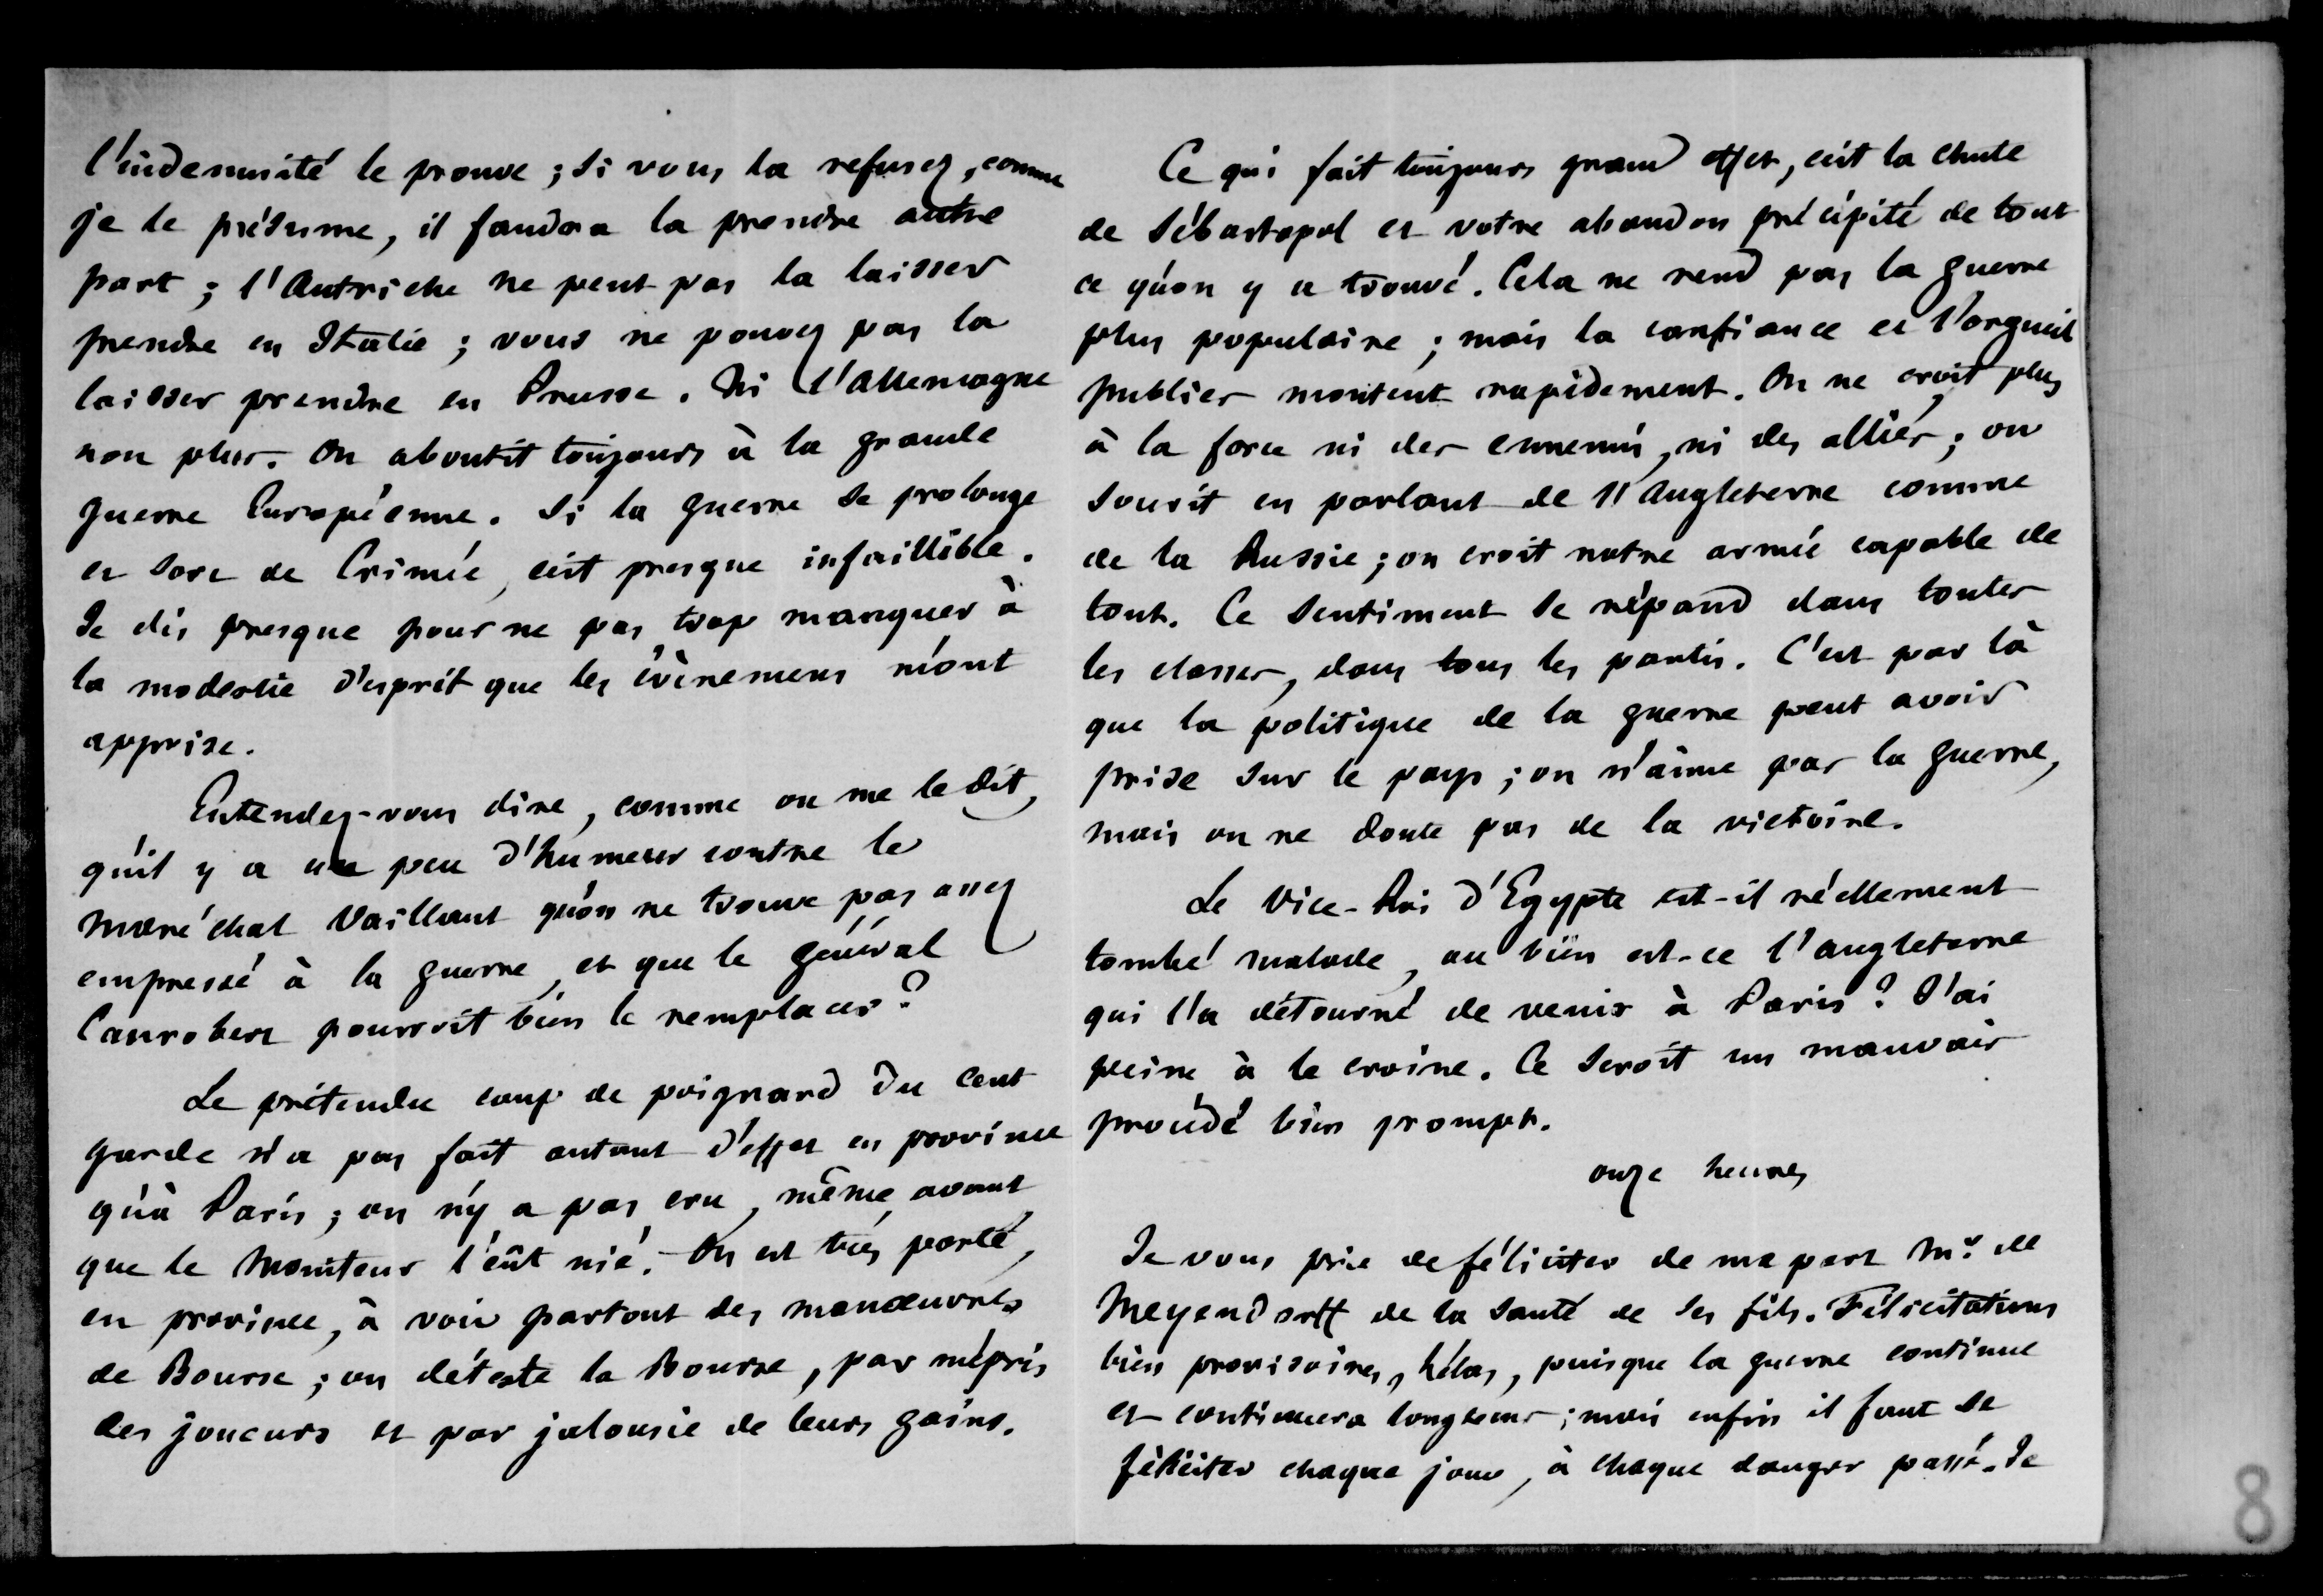 l'indemnité le prouve ; si vous la refusez, comme
je le présume, il faudra la prendre autre
part ; l'Autriche ne peut pas la laisser
prendre en Italie ; vous ne pouvez pas la
laisser prendre en Prusse. Ni l'Allemagne
non plus. On aboutit toujours à la grande
guerre Européenne. Si la guerre se prolonge
et sort de Crimée, c'est presque infaillible.
Je dis presque pour ne pas trop manquer à
la modestie d'esprit que les évènemens m'ont
apprise.
Entendez-vous dire, comme on me le dit,
qu'il y a un peu d'humeur contre le
maréchal Vaillant qu'on ne trouve pas assez
empressé à la guerre, et que le général
Canrobert pourroit bien le remplacer ?
Le prétendu coup de poignard du cent
garde n'a pas fait autant d'effet en province
qu'à Paris ; on n'y a pas cru, même avant
que le Moniteur l'eût nié. On est très porté,
en province, à voir partout des manœuvres
de Bourse ; on déteste la Bourse, par mépris
des joueurs et par jalousie de leurs gains.
Ce qui fait toujours grand effet, c'est la chute
de Sébastopol et votre abandon précipité de tout
ce qu'on y a trouvé. Cela ne rend pas la guerre
plus populaire ; mais la confiance et l'orgueil
publics montent rapidement. On ne croit plus
à la force ni des ennemis, ni des alliés ; on
sourit en parlant de l'Angleterre comme
de la Russie ; on croit notre armée capable de
tout. Ce sentiment se répand dans toutes
les classes, dans tous les partis. C'est par là
que la politique de la guerre peut avoir
prise sur le pays ; on n'aime pas la guerre,
mais on ne doute pas de la victoire.
Le Vice-Roi d'Egypte est-il réellement
tombé malade, ou bien est-ce l'angleterre
qui l'a détourné de venir à Paris ? J'ai
peine à le croire. Ce seroit un mauvais
procédé bien prompt.
onze heures
Je vous prie de féliciter de ma part Mr. de
Meyendorff de la santé de ses fils. Félicitations
bien provisoires, hélas, puisque la guerre continue
et continuera longtems ; mais enfin il faut se
féliciter chaque jour, à chaque danger passé. Je
8